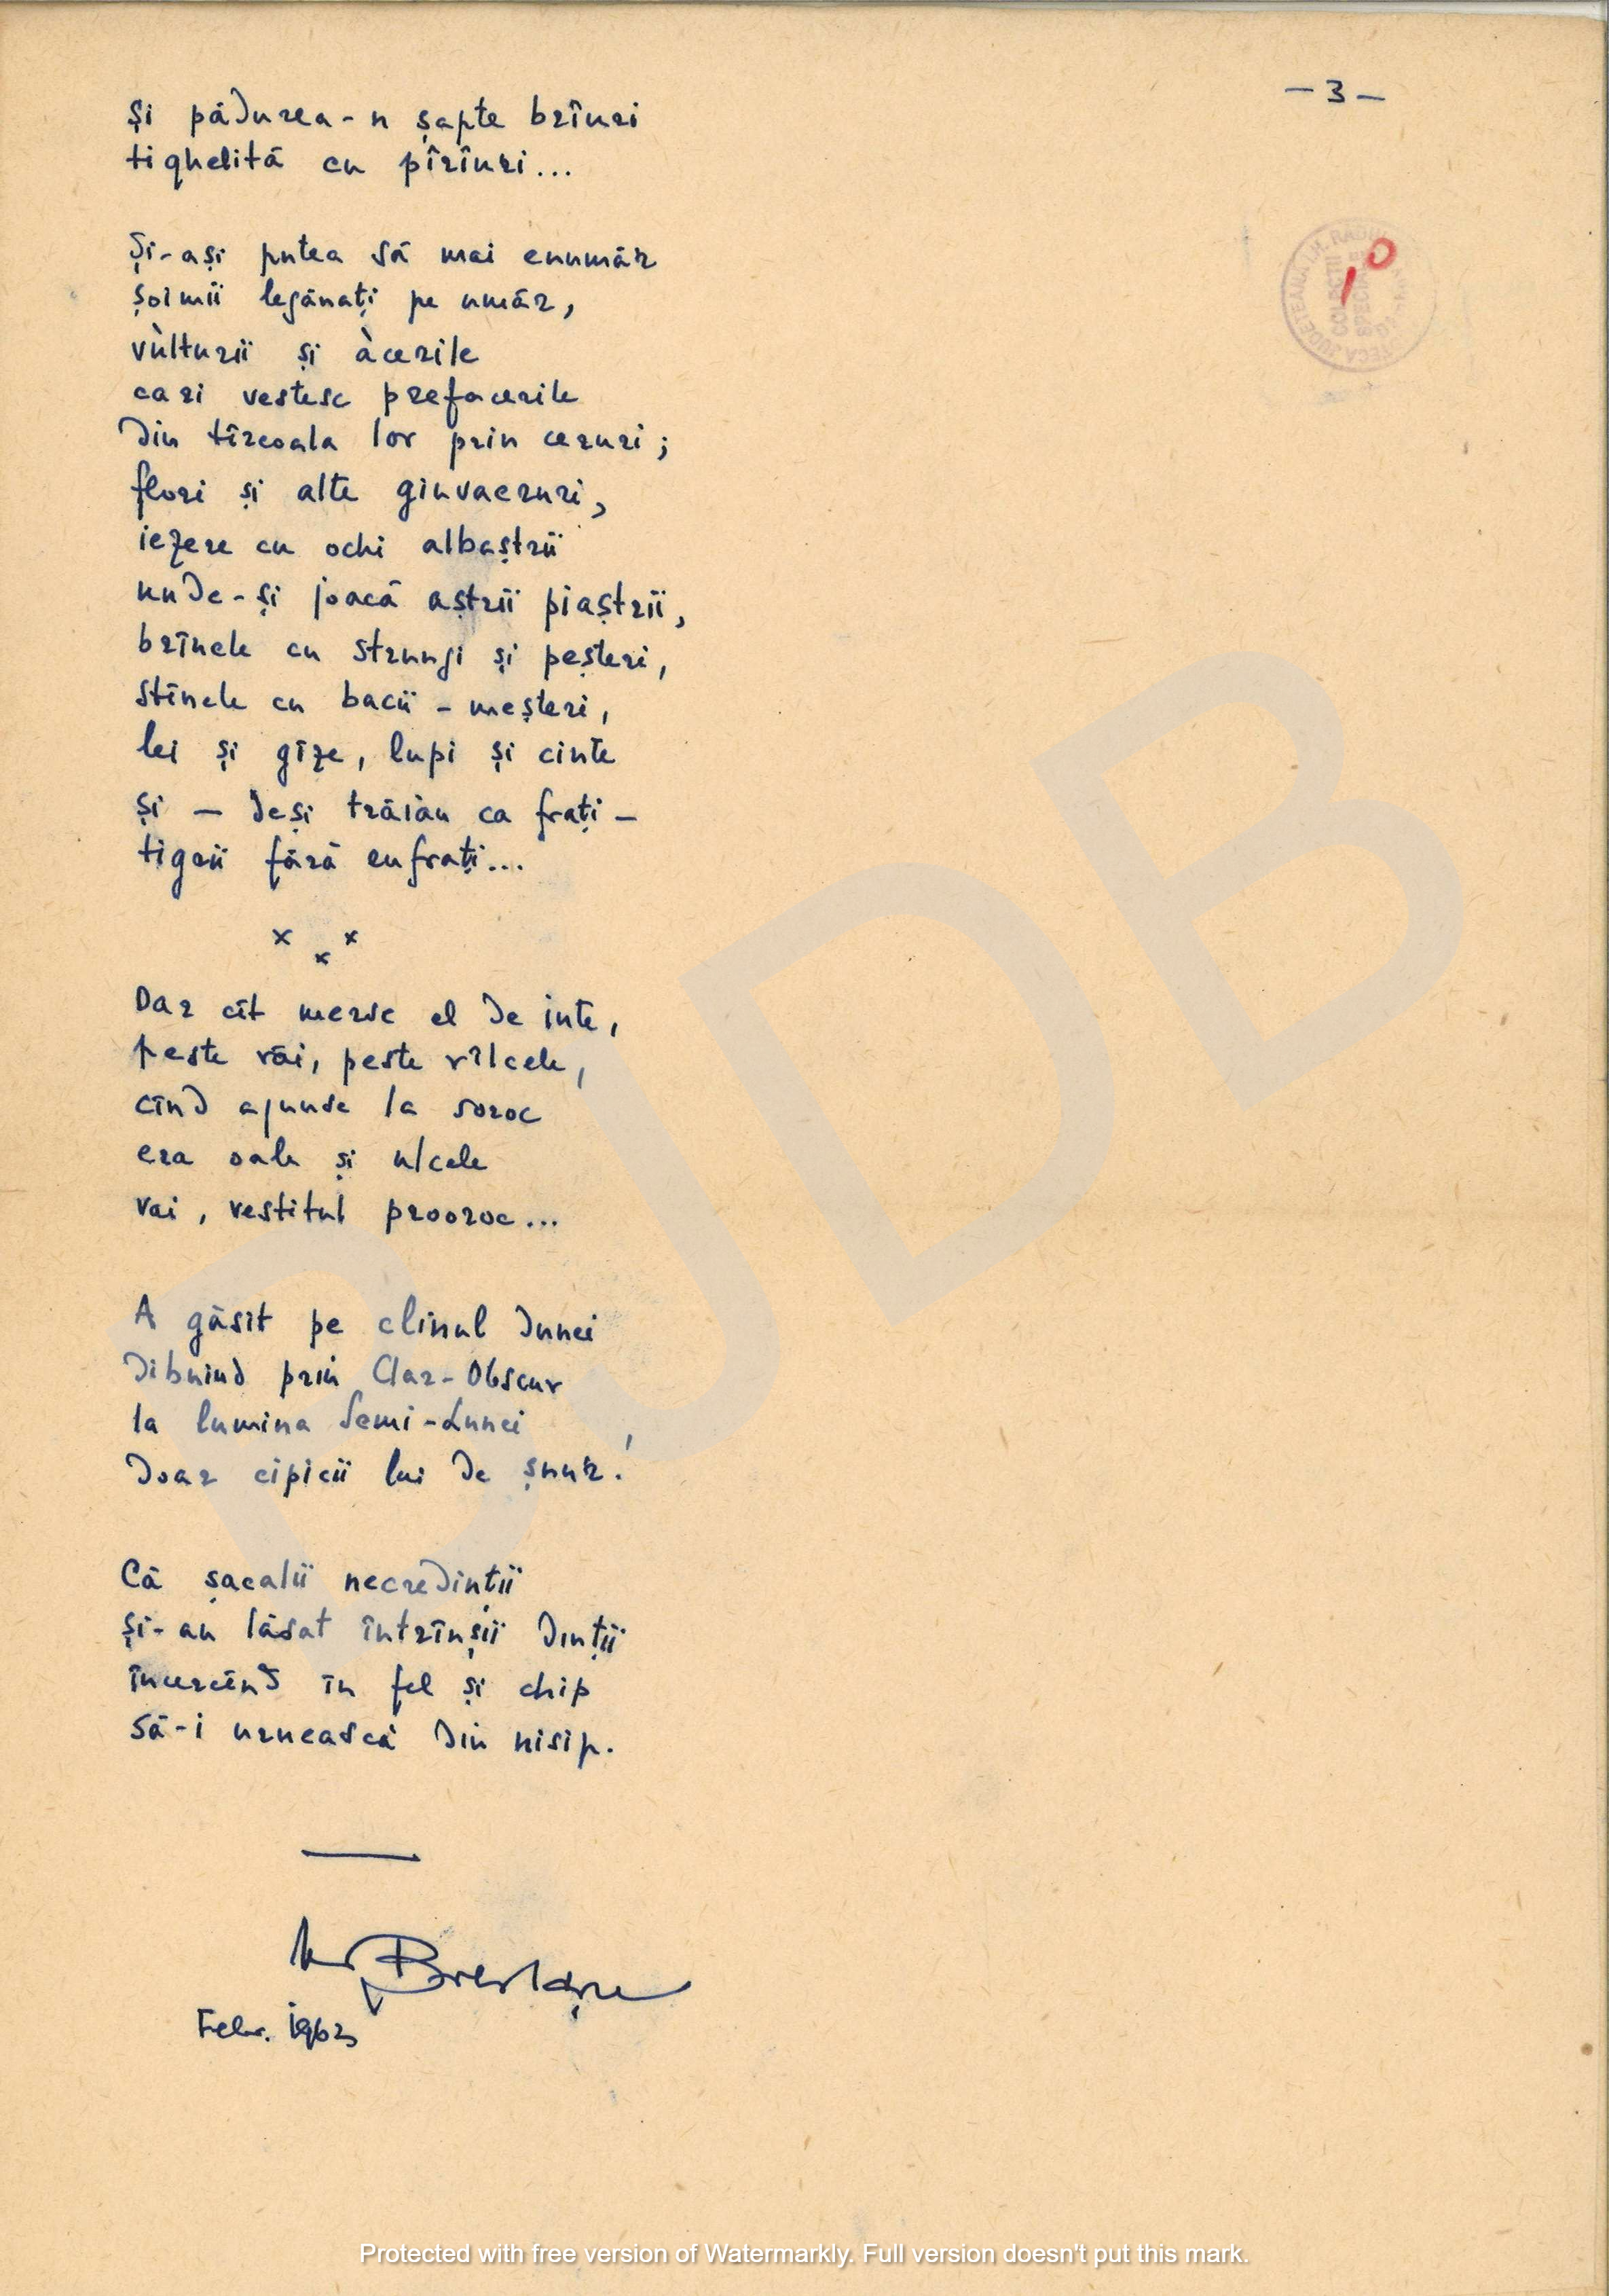 — 3 —
Și pădurea-n șapte brîuri
tighelită cu pîrîuri...
Și-ași putea să mai enumăr
șoimii legănați pe umăr,
vùlturii și àcerile
cari vestesc prefacerile
din tîrcoala lor prin ceruri;
flori și alte giuvaeruri,
iezere cu ochi albaștrii
unde-și joacă aștrii piaștrii,
brînele cu strungi și peșteri,
stînele cu bacii - meșteri,
lei și gîze, lupi și cinte
și — deși trăiàu ca frați —
tigrii fără eufrați...
x x x
Dar cît merse el de inte,
peste văi, peste vîlcele,
cînd ajunse la soroc
era oale și ulcele
vai, vestitul prooroc...
A găsit pe clinul dunei
dibuind prin Clar-Obscur
la lumina Semi-Lunei
doar cipicii lui de șnur!
Că șacalii necredinții
și-au lăsat întrînșii dinții
încercînd în fel și chip
să-i urnească din nisip.
Febr. 1963
10
BJDB
Protected with free version of Watermarkly. Full version doesn't put this mark.